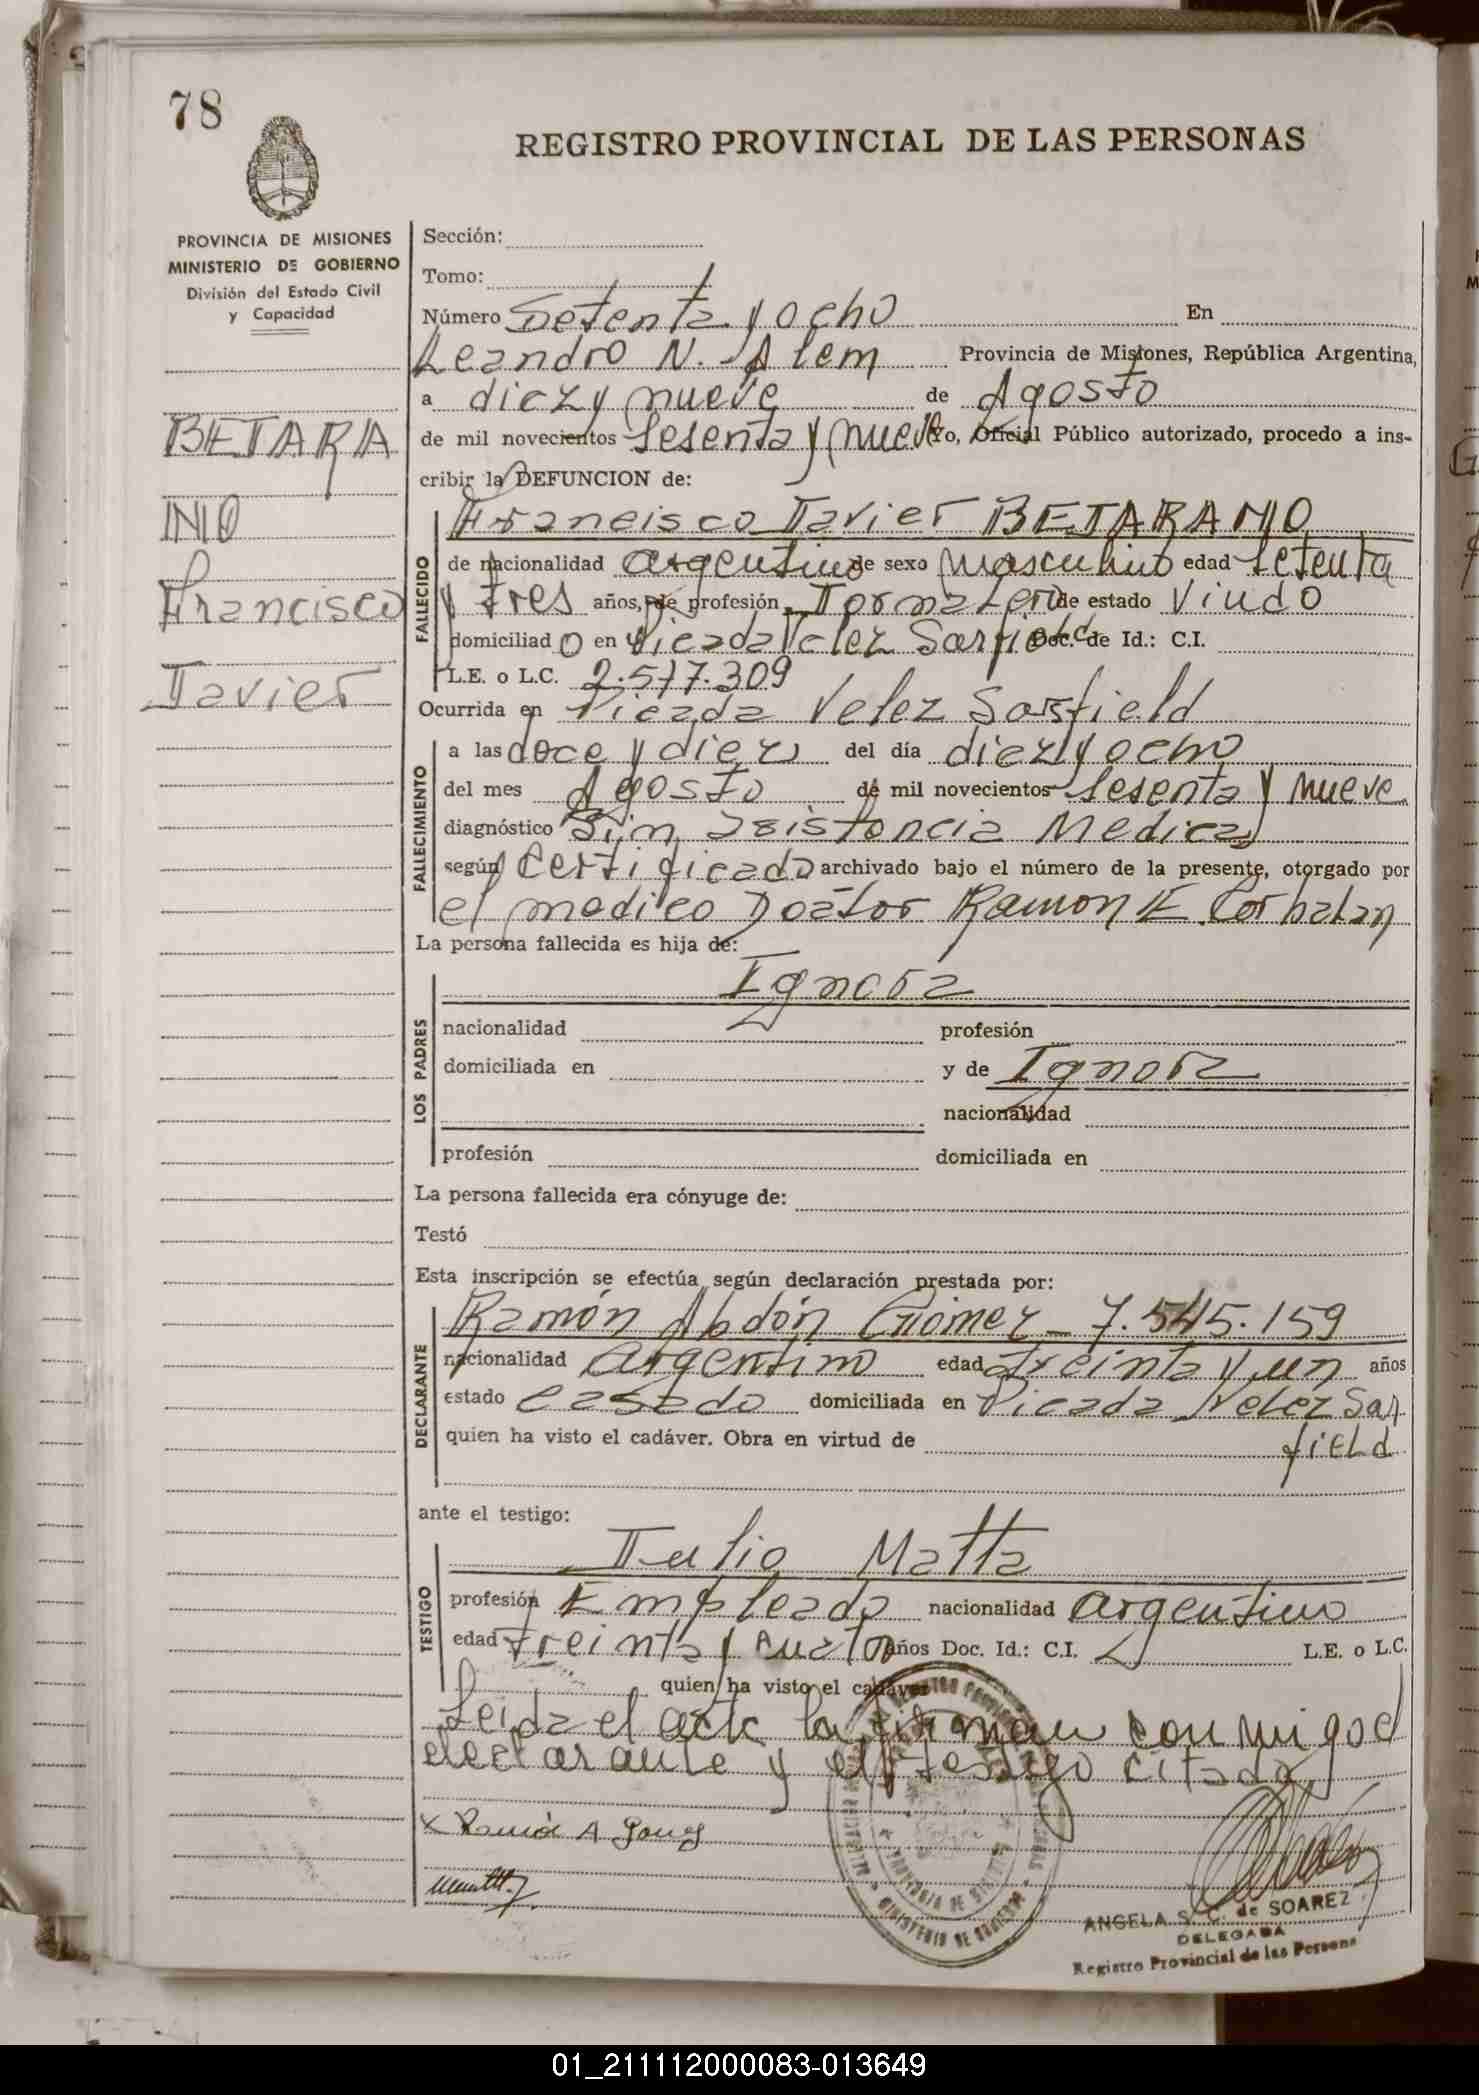 78
REGISTRO PROVINCIAL DE LAS PERSONAS
PROVINCIA DE MISIONES
MINISTERIO DE GOBIERNO
División del Estado Civil
y Capacidad
BETARA
NIO
Francisco
Javier
Sección:
Tomo:
Número Setenta y ocho En
Leandro N. Alem Provincia de Misiones, República Argentina,
a diez y nueve de Agosto
de mil novecientos sesenta y nueve Yo, Oficial Público autorizado, procedo a ins-
cribir la DEFUNCION de:
FALLECIDO
Francisco Javier BETARANIO
de nacionalidad argentino de sexo masculino edad setenta
y tres años, de profesión Jornalero de estado Viudo
domiciliado en Picada Velez Sarfield Doc. de Id.: C.I.
L.E. o L.C. 2.577.309
Ocurrida en Picada Velez Sarsfield
FALLECIMIENTO
a las doce y diez del día diez y ocho
del mes Agosto de mil novecientos sesenta y nueve
diagnóstico Sin asistencia Medica
según certificado archivado bajo el número de la presente, otorgado por
el medico Doctor Ramon E. Corbalan
La persona fallecida es hija de:
LOS PADRES
Ignora
nacionalidad profesión
domiciliada en y de Ignora
nacionalidad
profesión domiciliada en
La persona fallecida era cónyuge de:
Testó
Esta inscripción se efectúa según declaración prestada por:
DECLARANTE
Ramón Abdón Gómez - 7.545.159
nacionalidad Argentino edad treinta y un años
estado casado domiciliada en Picada Velez Sar
quien ha visto el cadáver. Obra en virtud de field
ante el testigo:
TESTIGO
Julio Matta
profesión Empleado nacionalidad argentino
edad treinta y cuatro años Doc. Id.: C.I. L.E. o L.C.
quien ha visto el cadáver
Leida el acta la firman conmigo el
declarante y el testigo citado
x Ramón A Gomez
ANGELA S. C. de SOAREZ
DELEGADA
Registro Provincial de las Persona
PROVINCIA DE MISIONES
MINISTERIO DE GOBIERNO
01_211112000083-013649